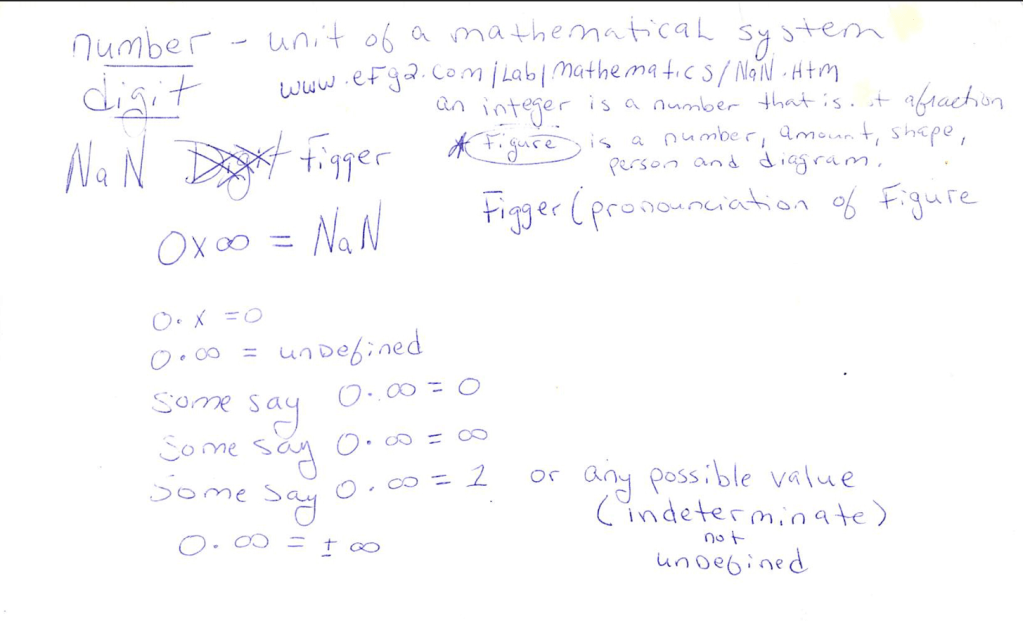 number - unit of a mathematical system
digit www.efg2.com/Lab/Mathematics/NaN.Htm
an integer is a number that is . t a fraction
NaN Digit Figger * Figure is a number, amount, shape,
person and diagram.
Figger (pronounciation of Figure
0x∞ = NaN
0·x =0
0·∞ = undefined
Some say 0·∞ = 0
Some say 0·∞ = ∞
Some say 0·∞ = 1 or any possible value
(indeterminate)
not
undefined
0·∞ = ±∞